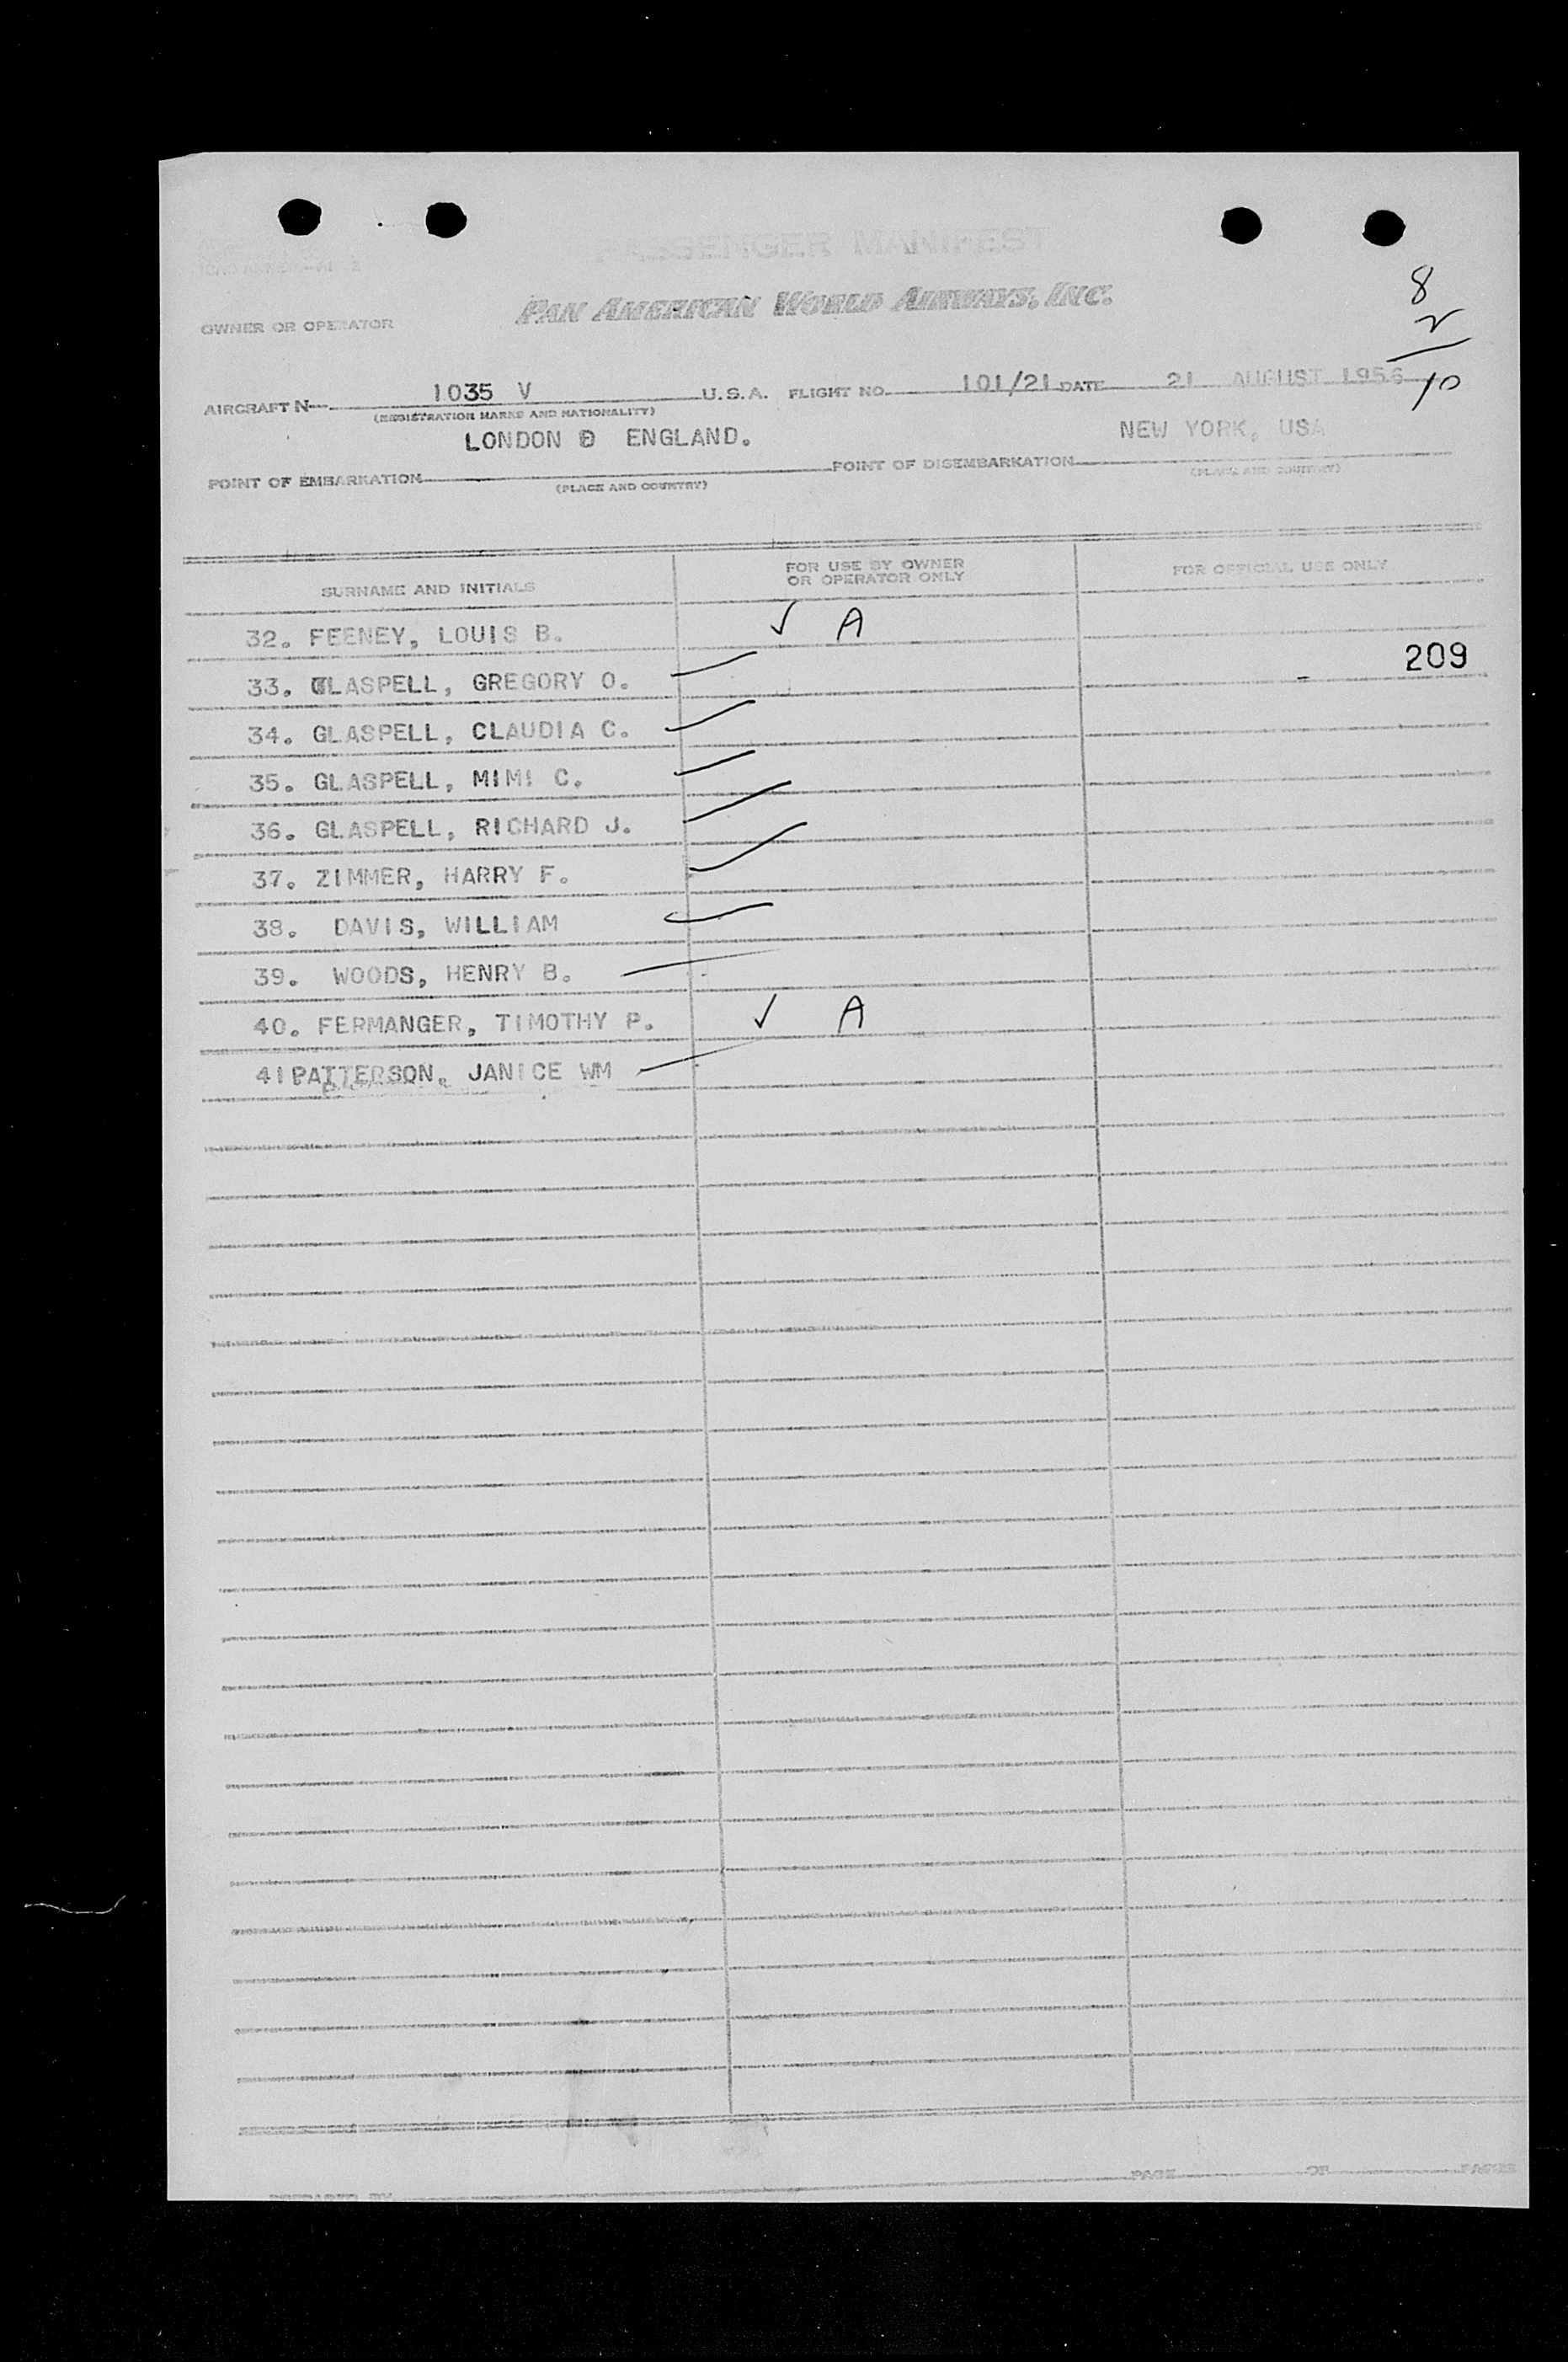 PASSENGER MANIFEST
PAN AMERICAN WORLD AIRWAYS, INC.
OWNER OR OPERATOR
8
2
10
AIRCRAFT N 1035 V U.S.A. FLIGHT NO. 101/21 DATE 21 AUGUST 1956
(REGISTRATION MARKS AND NATIONALITY)
LONDON ENGLAND. NEW YORK, USA
POINT OF EMBARKATION POINT OF DISEMBARKATION
(PLACE AND COUNTRY) (PLACE AND COUNTRY)
SURNAME AND INITIALS FOR USE BY OWNER OR OPERATOR ONLY FOR OFFICIAL USE ONLY
32. FEENEY, LOUIS B. ✓ A
209
33. GLASPELL, GREGORY O.
34. GLASPELL, CLAUDIA C.
35. GLASPELL, MIMI C.
36. GLASPELL, RICHARD J.
37. ZIMMER, HARRY F.
38. DAVIS, WILLIAM
39. WOODS, HENRY B.
40. FERMANGER, TIMOTHY P. ✓ A
41 PATTERSON, JANICE WM
PAGE OF PAGES